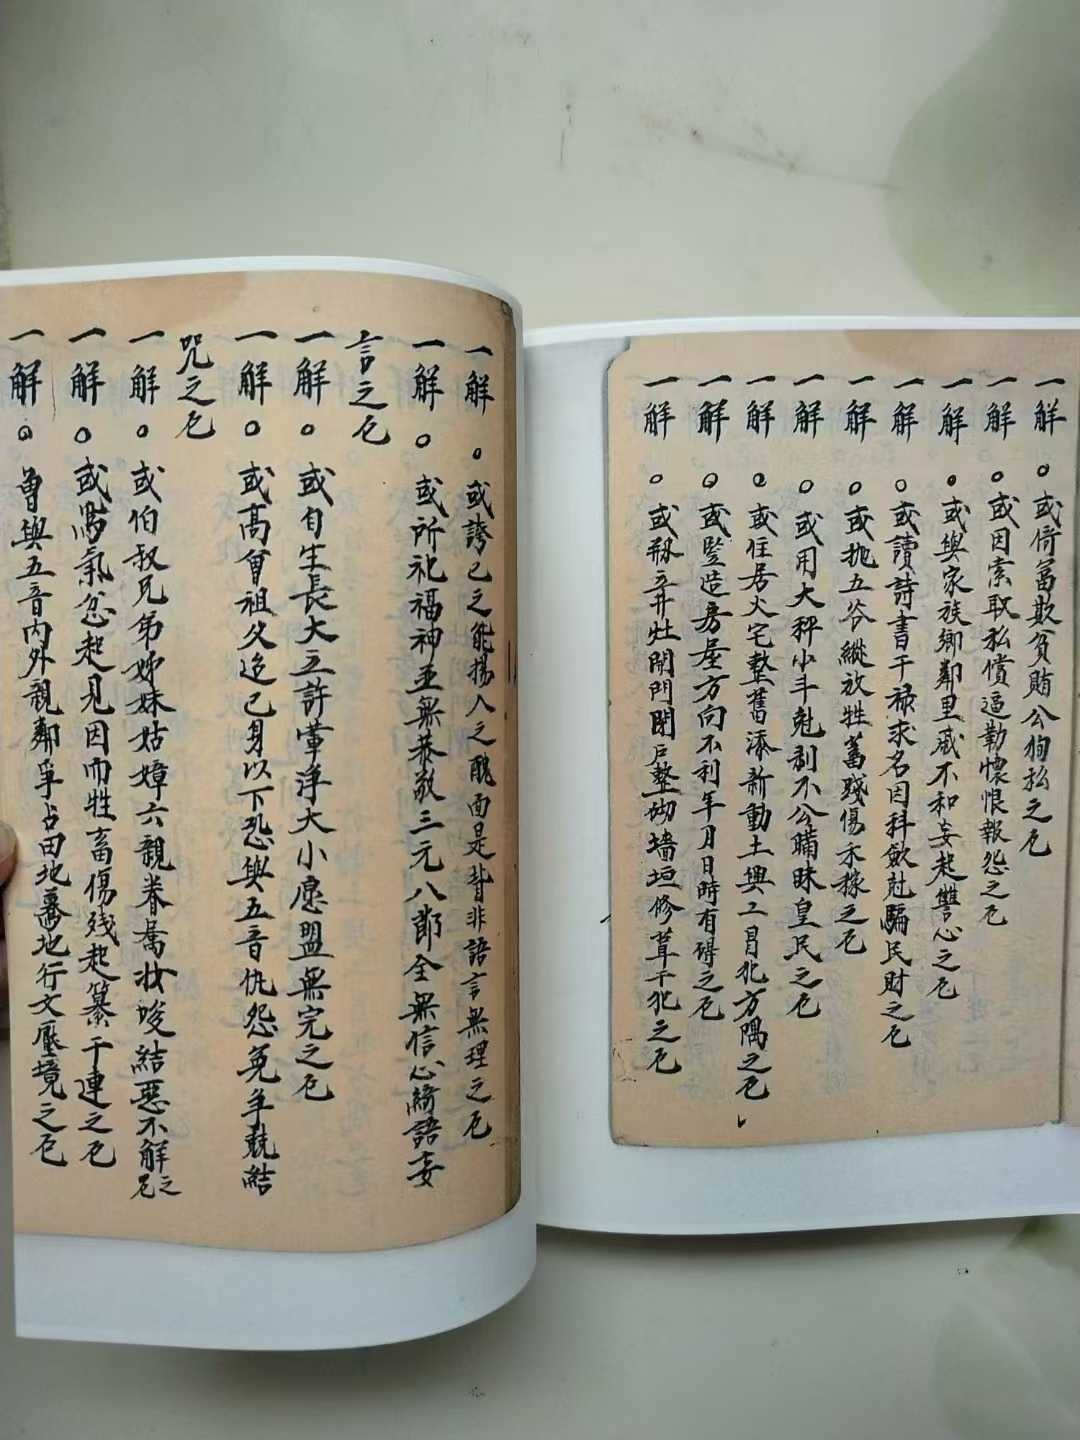 一解。或倚富欺貧賄公狥私之厄
一解。或因索取私償逼勒懷恨報怨之厄
一解。或與家族鄉鄰里戚不和妄起讐心之厄
一解。或讀詩書干祿求名因科歛訛騙民財之厄
一解。或抛五谷縱放牲畜踐傷禾稼之厄
一解。或用大秤小斗尅剝不公瞞昧皇民之厄
一解。或住居火宅整舊添新動土興工冒犯方隅之厄
一解。或豎造房屋方向不利年月日時有碍之厄
一解。或剏立井灶開門閉戶整坳墙垣修葺干犯之厄
一解。或誇己之能揚人之醜面是背非語言無理之厄
一解。或所祀福神並無恭敬三元八節全無信心綺語妄
言之厄
一解。或自生長大立許葷浮大小愿盟無完之厄
一解。或高曾祖父迨己身以下恐與五音仇怨冤爭競結
咒之厄
一解。或伯叔兄弟姊妹姑嫜六親眷屬壯唆結惡不解之厄
一解。或焉氣忿起見因而牲畜傷殘起纂干連之厄
一解。曾與五音內外親鄰爭占田地蓦地行文壓境之厄